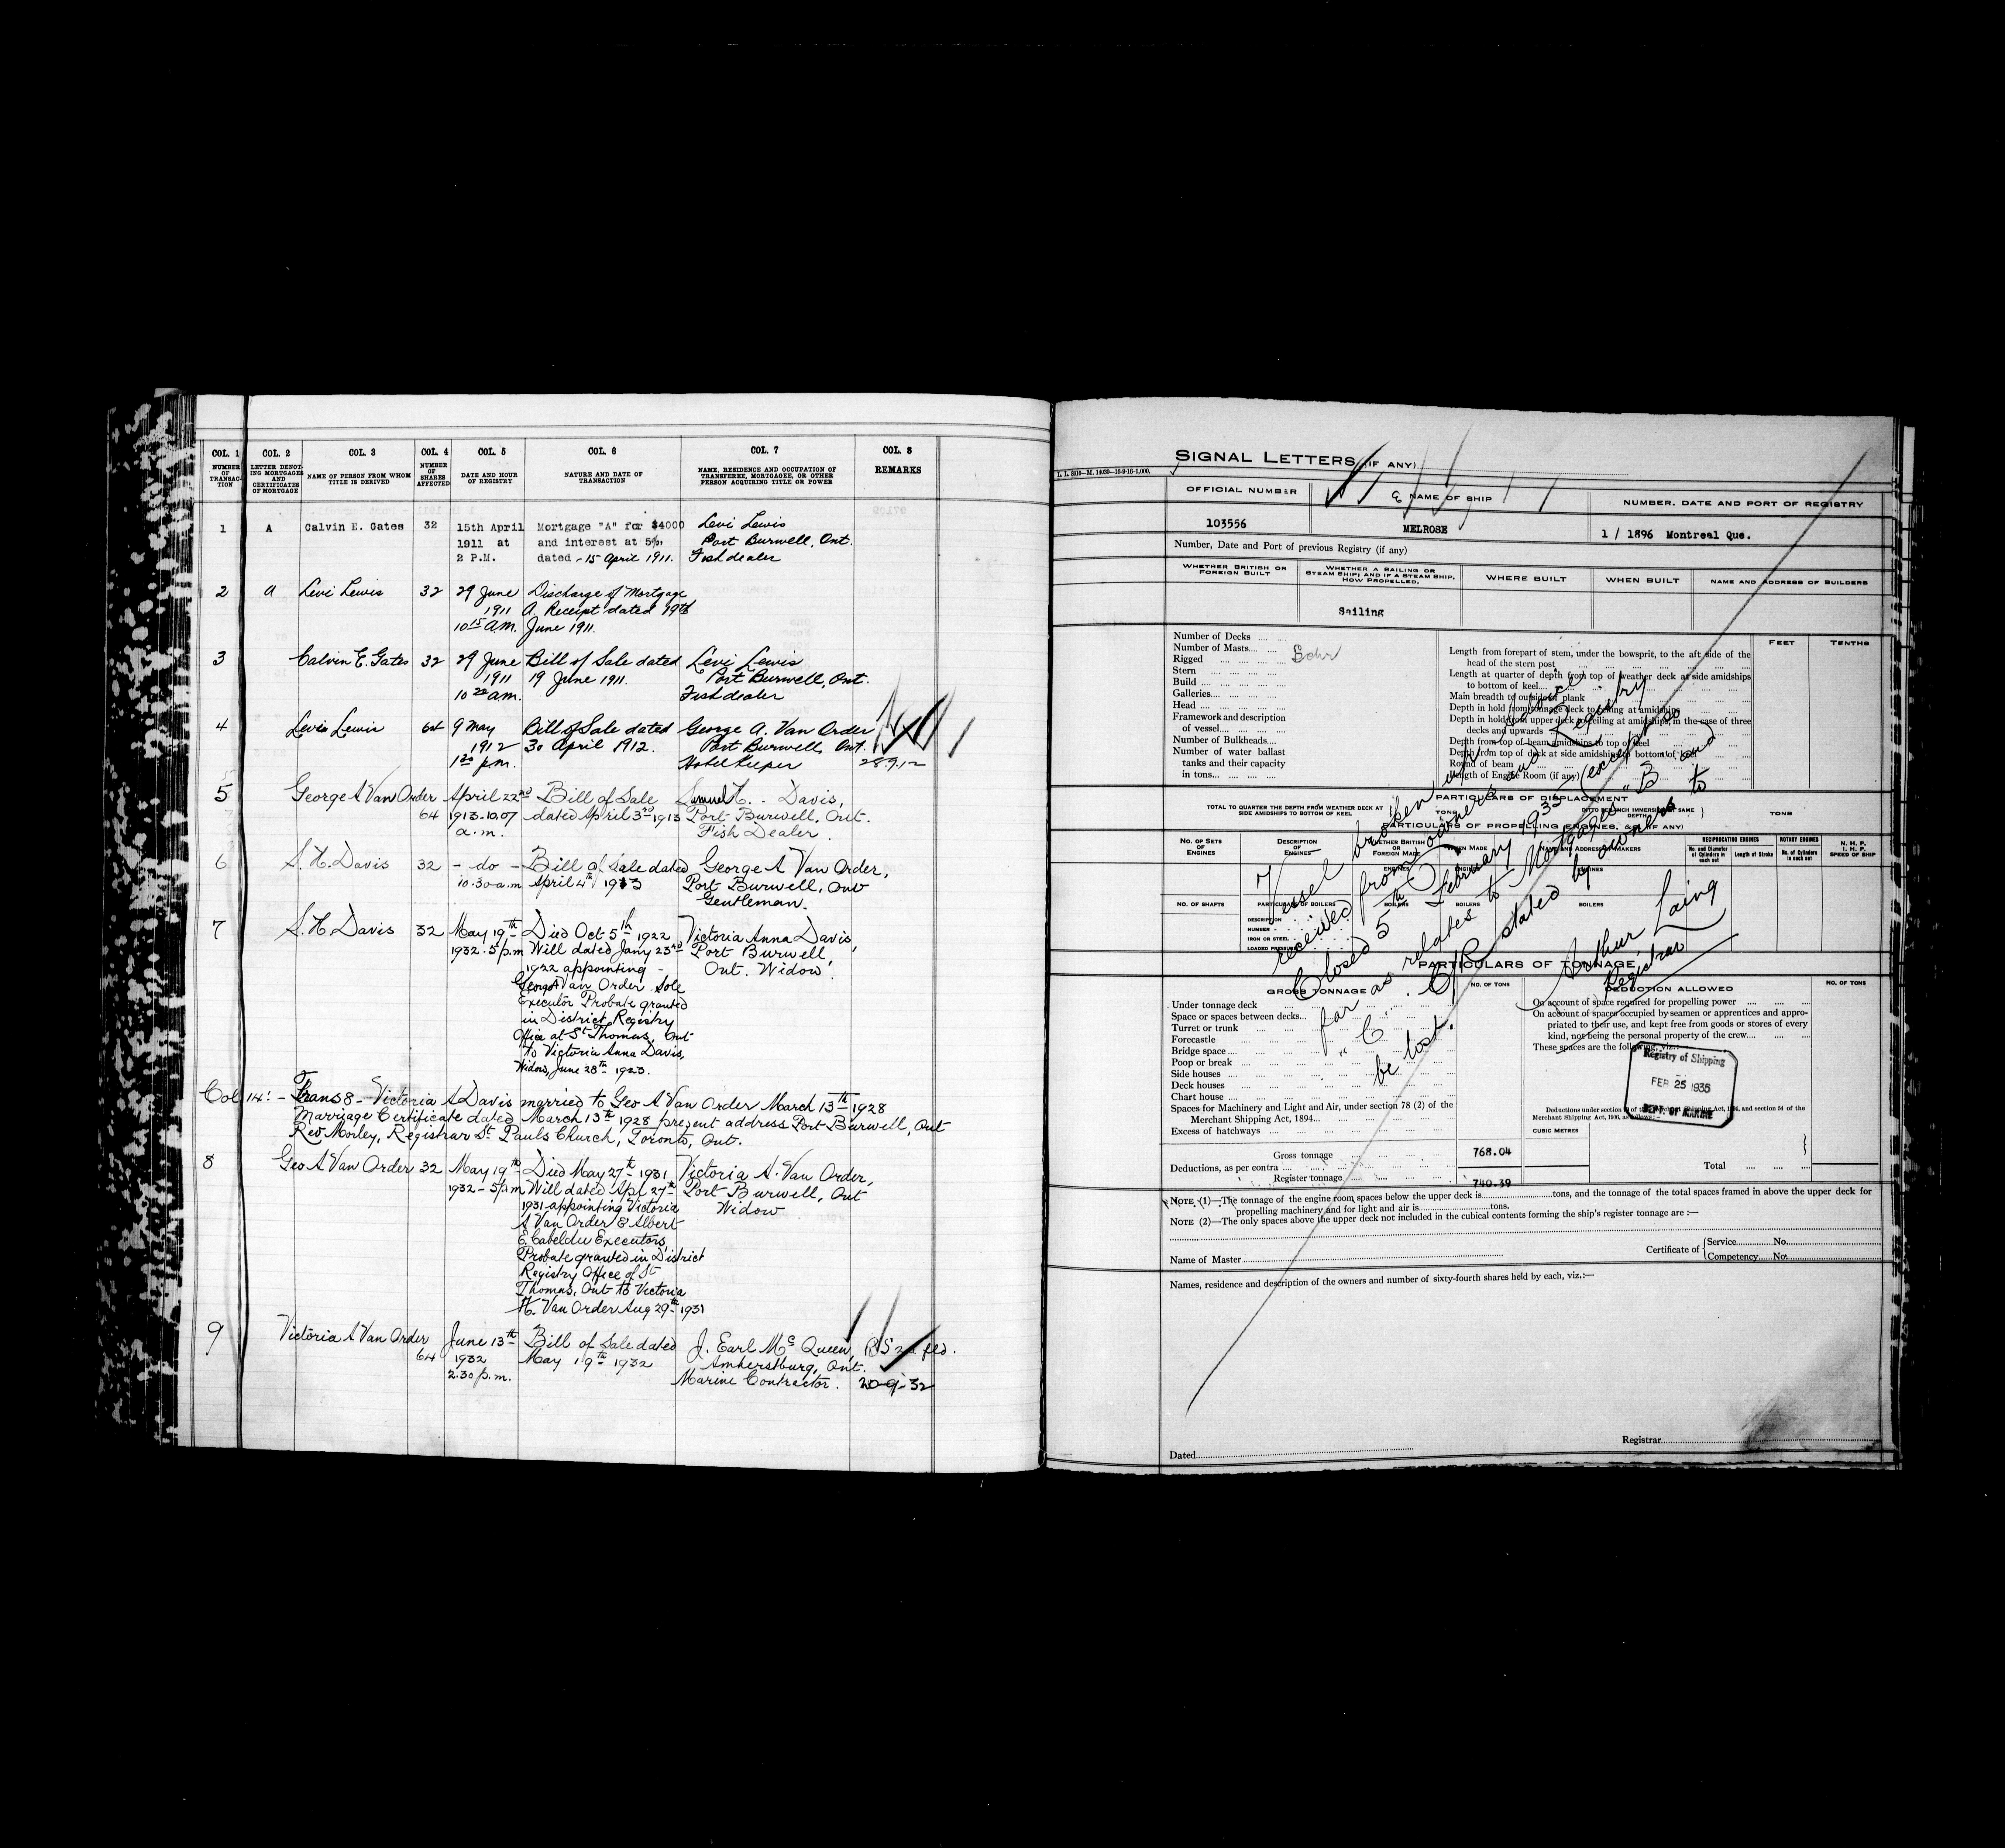 COL. 1 COL. 2 COL. 3 COL. 4 COL. 5 COL. 6 COL. 7 COL. 8
NUMBER OF TRANSAC-TION
LETTER DENOT-ING MORTGAGES AND CERTIFICATES OF MORTGAGE
NAME OF PERSON FROM WHOM TITLE IS DERIVED
NUMBER OF SHARES AFFECTED
DATE AND HOUR OF REGISTRY
NATURE AND DATE OF TRANSACTION
NAME, RESIDENCE AND OCCUPATION OF TRANSFEREE, MORTGAGEE, OR OTHER PERSON ACQUIRING TITLE OR POWER
REMARKS
1 A Calvin E. Gates 32 15th April Mortgage "A" for $4000 Levi Lewis
1911 at and interest at 5%, Port Burwell, Ont.
2 P.M. dated - 15 April 1911. Fishdealer
2 A Levi Lewis 32 29 June Discharge of Mortgage
1911 A. Receipt dated 19th
10 15 A.M. June 1911.
3 Calvin E. Gates 32 29 June Bill of Sale dated Levi Lewis
1911 19 June 1911. Port Burwell, Ont.
10 20 a.m. Fishdealer
4 Levi Lewis 64 9 May Bill of Sale dated George A. Van Order
1912 30 April 1912. Port Burwell, Ont.
1 30 p.m. Hotel Keeper 28.9.12
5 George A Van Order April 22nd Bill of Sale Samuel H. Davis,
64 1913-10.07 dated April 3rd 1913 Port Burwell, Ont.
a.m. Fish Dealer.
6 S. H. Davis 32 - do - Bill of Sale dated George A Van Order,
10.30 a.m April 4th 1913 Port Burwell, Ont
Gentleman.
7 S. H. Davis 32 May 19th Died Oct 5th 1922 Victoria Anna Davis,
1932. 5 p.m Will dated Jany 23rd Port Burwell,
1922 appointing - Ont. Widow.
George A Van Order Sole
Executor Probate granted
in District Registry
Office at St Thomas, Ont
to Victoria Anna Davis,
Widow, June 28th 1923.
Col 14: - Trans 8 - Victoria A Davis married to Geo A Van Order March 13th 1928
Marriage Certificate dated March 13th 1928 present address Port Burwell, Ont
Rev Morley, Registrar St Pauls Church, Toronto, Ont.
8 Geo A Van Order 32 May 19th Died May 27th 1931 Victoria A. Van Order,
1932 - 5 p.m Will dated Apl 27th Port Burwell, Ont
1931 appointing Victoria Widow
A Van Order & Albert
E. Cabeldu Executors,
Probate granted in District
Registry Office of St
Thomas, Ont to Victoria
A. Van Order Aug 29th 1931
9 Victoria A Van Order June 13th Bill of Sale dated J. Earl McQueen,
64 1932 May 19th 1932 Amherstburg, Ont.
2.30 p.m. Marine Contractor. 20-9-32
SIGNAL LETTERS (IF ANY)
OFFICIAL NUMBER NAME OF SHIP NUMBER, DATE AND PORT OF REGISTRY
103556 MELROSE 1 / 1896 Montreal Que.
Number, Date and Port of previous Registry (if any)
WHETHER BRITISH OR FOREIGN BUILT
WHETHER A SAILING OR STEAM SHIP; AND IF A STEAM SHIP, HOW PROPELLED.
WHERE BUILT WHEN BUILT NAME AND ADDRESS OF BUILDERS
Sailing
Number of Decks
Number of Masts
Rigged Schr
Stern
Build
Galleries
Head
Framework and description
of vessel
Number of Bulkheads
Number of water ballast
tanks and their capacity
in tons
FEET TENTHS
Length from forepart of stem, under the bowsprit, to the aft side of the
head of the stern post
Length at quarter of depth from top of weather deck at side amidships
to bottom of keel
Main breadth to outside of plank
Depth in hold from tonnage deck to ceiling at amidships
Depth in hold from upper deck to ceiling at amidships, in the case of three
decks and upwards
Depth from top of beam amidships to top of keel
Depth from top of deck at side amidships to bottom of keel
Round of beam
Length of Engine Room (if any)
PARTICULARS OF DISPLACEMENT
TOTAL TO QUARTER THE DEPTH FROM WEATHER DECK AT SIDE AMIDSHIPS TO BOTTOM OF KEEL TONS TONS
PARTICULARS OF PROPELLING ENGINES, &c. (IF ANY)
NO. OF SETS OF ENGINES
DESCRIPTION OF ENGINES
WHETHER BRITISH OR FOREIGN MADE
WHEN MADE
NAME AND ADDRESS OF MAKERS
RECIPROCATING ENGINES
No. and Diameter of Cylinders in each set
Length of Stroke
ROTARY ENGINES
No. of Cylinders in each set
N. H. P.
I. H. P.
SPEED OF SHIP
NO. OF SHAFTS
PARTICULARS OF BOILERS
DESCRIPTION
NUMBER
IRON OR STEEL
LOADED PRESSURE
Vessel broken up. Advice
received from owners and Registry
Closed 5th February 1935 (except so
far as relates to Mortgages "B" and
"C" stated by owners to
be lost.
Arthur Laing
Registrar
PARTICULARS OF TONNAGE
GROSS TONNAGE NO. OF TONS DEDUCTION ALLOWED NO. OF TONS
Under tonnage deck
Space or spaces between decks
Turret or trunk
Forecastle
Bridge space
Poop or break
Side houses
Deck houses
Chart house
Spaces for Machinery and Light and Air, under section 78 (2) of the
Merchant Shipping Act, 1894
Excess of hatchways
On account of space required for propelling power
On account of spaces occupied by seamen or apprentices and appro-
priated to their use, and kept free from goods or stores of every
kind, not being the personal property of the crew
These spaces are the following, viz.:—
Registry of Shipping
FEB 25 1935
DEPT. OF MARINE
CUBIC METRES
Gross tonnage 768.04
Deductions, as per contra Total
Register tonnage 740.39
NOTE (1)—The tonnage of the engine room spaces below the upper deck is tons, and the tonnage of the total spaces framed in above the upper deck for
propelling machinery and for light and air is tons.
NOTE (2)—The only spaces above the upper deck not included in the cubical contents forming the ship's register tonnage are :—
Name of Master Certificate of Service No.
Competency No.
Names, residence and description of the owners and number of sixty-fourth shares held by each, viz.:—
Registrar
Dated